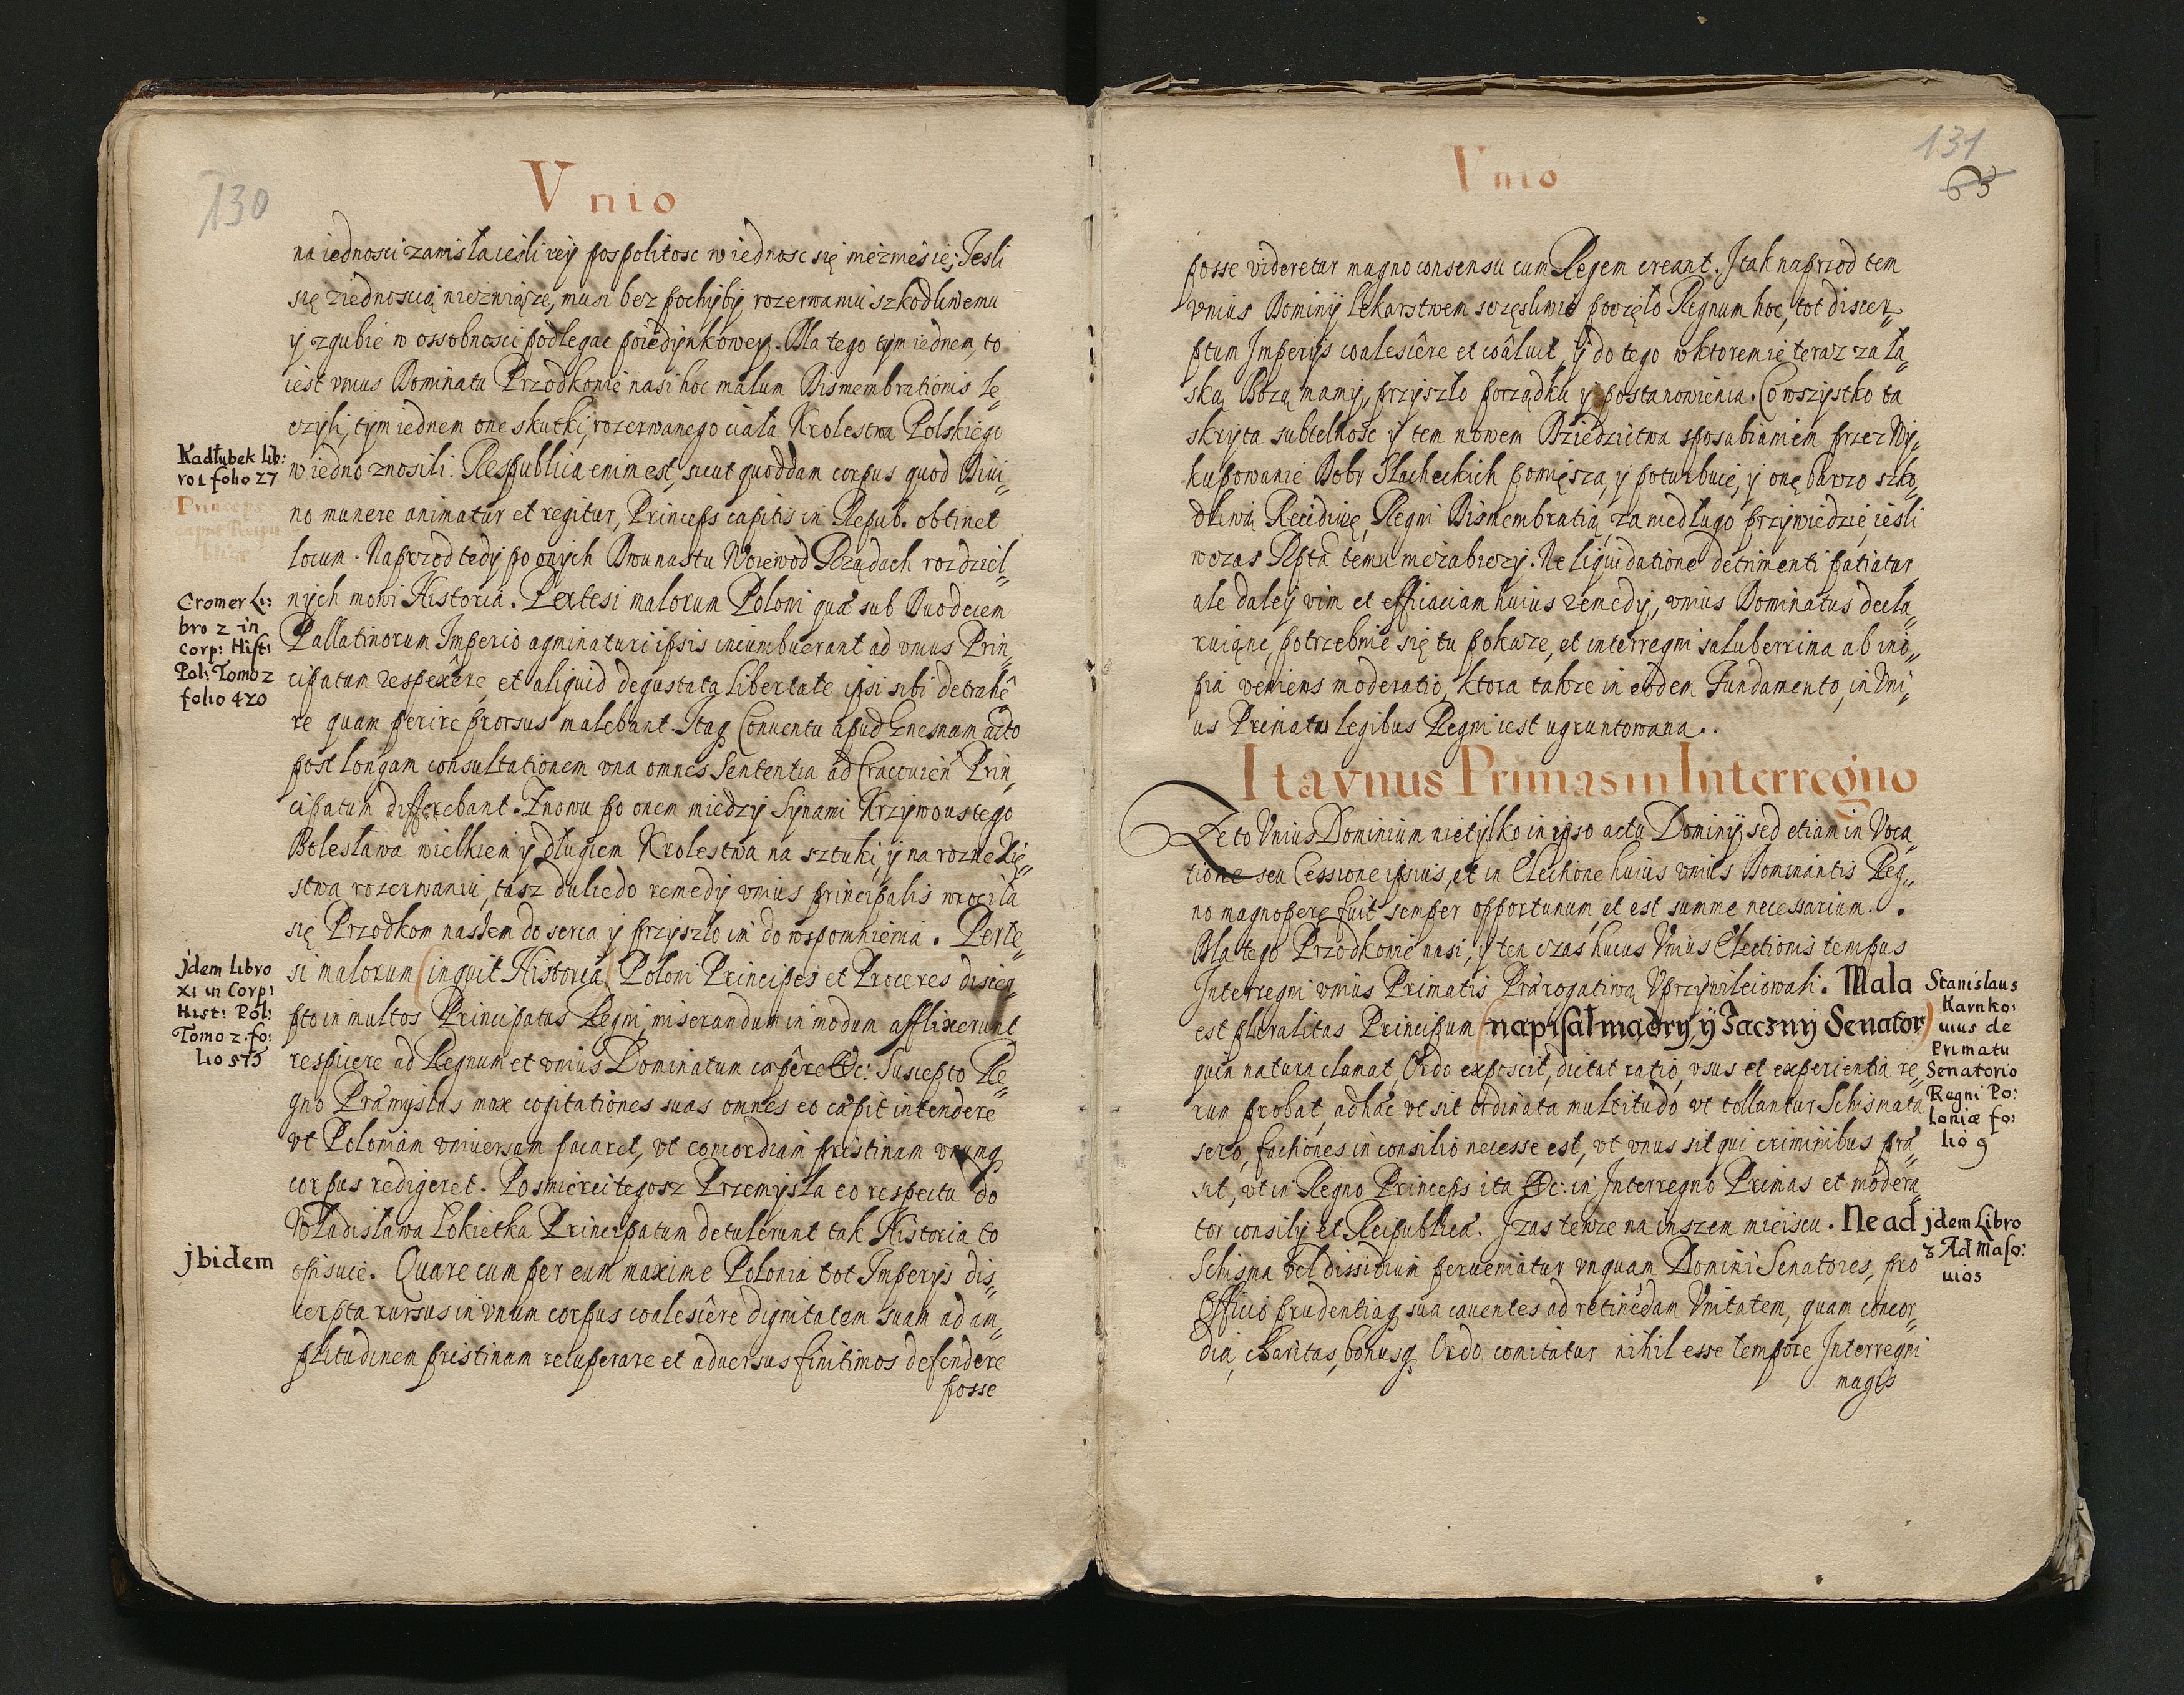 130
Vnio
na iednosci zawisła iesli rzeÿ pospolitosc w iednosc się niezniesie; Iesli
się ziednoscią niezwiąże, musi bez pochÿbÿ rozerwaniu szkodliwemu
ÿ zgubie w ossobnosci podlegac poiedÿnkoweÿ. Dla tego tÿm iednem, to
iest vnius Dominatu Przodkowie nasi hoc malum Dismembrationis le„
czÿli, tÿm iednem one skutki, rozerwanego ciała Krolestwa Polskiego
Kadłubek lib:
ro 1 folio 27
w iedno znosili. Respublica enim est, sicut quoddam corpus quod Diui„
Princeps
caput Reipu
blicæ
no munere animatur et regitur, Princeps capitis in Repub. obtinet
locum. Naprzod tedÿ po onÿch Dwunastu Woiewod Rządach rozdziel„
Cromer Li:
bro 2 in
Corp: Hist:
Pol: Tomo 2
folio 420
nÿch mowi Historia. Pertesi malorum Poloni quæ sub Duodecem
Pallatinorum Imperio agminaturi ipsis incumbuerant ad vnius Prin„
cipatum respexêre, et aliquid degustata libertate ipsi sibi detrahê
re quam perire prorsus malebant. Itaq Conuentu apud Gnesnam acto
post longam consultationem vna omnes Sententia ad Cracouien Prin„
cipatum differebant. Znowu po onem miedzÿ Sÿnami Krzÿwoustego
Bolesława wielkien ÿ długiem Krolestwa na sztuki, ÿ na rozne Xię„
stwa rozerwaniu, tasz dulcedo remedÿ vnius principalis wrociła
się Przodkom nassem do serca ÿ przÿszło im do wspomnienia. Perte„
jdem Libro
XI in Corp:
Hist: Pol:
Tomo 2. fo:
lio 573
si malorum (inquit Historia) Poloni Principes et Proceres discer„
pto in multos Principatus Regni, miserandum in modum afflixerunt
respicere ad Regnum et vnius Dominatum cæpêre &c: Suscepto Re„
gno Præmÿslus mox cogitationes suas omnes eo cæpit intendere
vt Poloniam vniuersam pacaret, vt concordiam pristinam vnumq
corpus redigeret. Po smierci tegosz Przemÿsła eo respectu do
Władisława Lokietka Principatum detulerunt tak Historia to
jbidem
opisuie. Quare cum per eum maxime Polonia tot Imperÿs dis„
cerpta rursus in vnum corpus coalescêre dignitatem suam ad am„
plitudinem pristinam recuperare et aduersus finitimos defendere
posse
131
63
Vnio
posse videretur magno consensu eum Regem creant. Itak naprzod tem
vnius Dominÿ lekarstwem szczęsliwie poczęło Regnum hoc, tot discer„
ptum Imperÿs coalescêre et coâluit, ÿ do tego w ktoremie teraz za ła„
ską Bozą mamÿ, przÿszło porządku ÿ postanowienia. Co wszÿstko ta
skrÿta subtelnosc ÿ tem nowem Dziedzictwa sposabianiem przez Wÿ„
kupowanie Dobr Slacheckich pomięsza, ÿ poturbuie, ÿ onę barzo szko„
dliwą Recidiuę, Regni Dismembratią, zamedługo przÿwiedzie, iesli
wczas Rpta temu niezabiezÿ. Ne liquidatione detrimenti patiatur
ale daleÿ vim et efficaciam huius remedÿ, vnius Dominatus decla„
ruiąne, potrzebnie się tu pokaze, et interregni saluberrina ab ino„
pia veniens moderatio, ktora takze in eodem Fundamento, in Vni„
us Primatu legibus Regni iest ugruntowana..
Ita vnus Primas in Interregno
Ze to Vnius Dominium nietÿlko in ipso actu Dominÿ sed etiam in Voca„
tione seu Cessione ipsius, et in Electione huius vnius Dominantis Reg„
no magnopere fuit semper opportunum, et est summe necessarium..
Dla tego Przodkowie nasi, ÿ ten czas huius Vnius Electionis tempus
Interregni vnius Primatis Prærogatiwą Vprzÿwileiowali. Mala
Stanislaus
Karnko:
uius de
Primatu
Senatorio
Regni Po:
loniæ fo:
lio 9
est pluralitas Principum (napisał mądry ÿ Zacznÿ Senator)
quin natura clamat, Ordo exposcit, dictat ratio, vsus et experientia re„
rum probat, adhæc vt sit ordinata multitudo vt tollantur Schismata
sero, factiones in consilio necesse est, vt vnus sit qui criminibus præ„
sit, vt in Regno Princeps ita &c: in Interregno Primas et modera„
tor consilÿ et Reipublicæ. I zas tenze na inszem mieiscu. Ne ad
jdem Libro
3 Ad Maſo:
uios
Schisma vel dissidium perueniatur vnquam Domini Senatores, pro
Officio prudentiaq sua cauentes ad retinēdam Vnitatem, quam concor„
dia, charitas, bonusq Ordo comitatur nihil esse tempore Interregni
magis